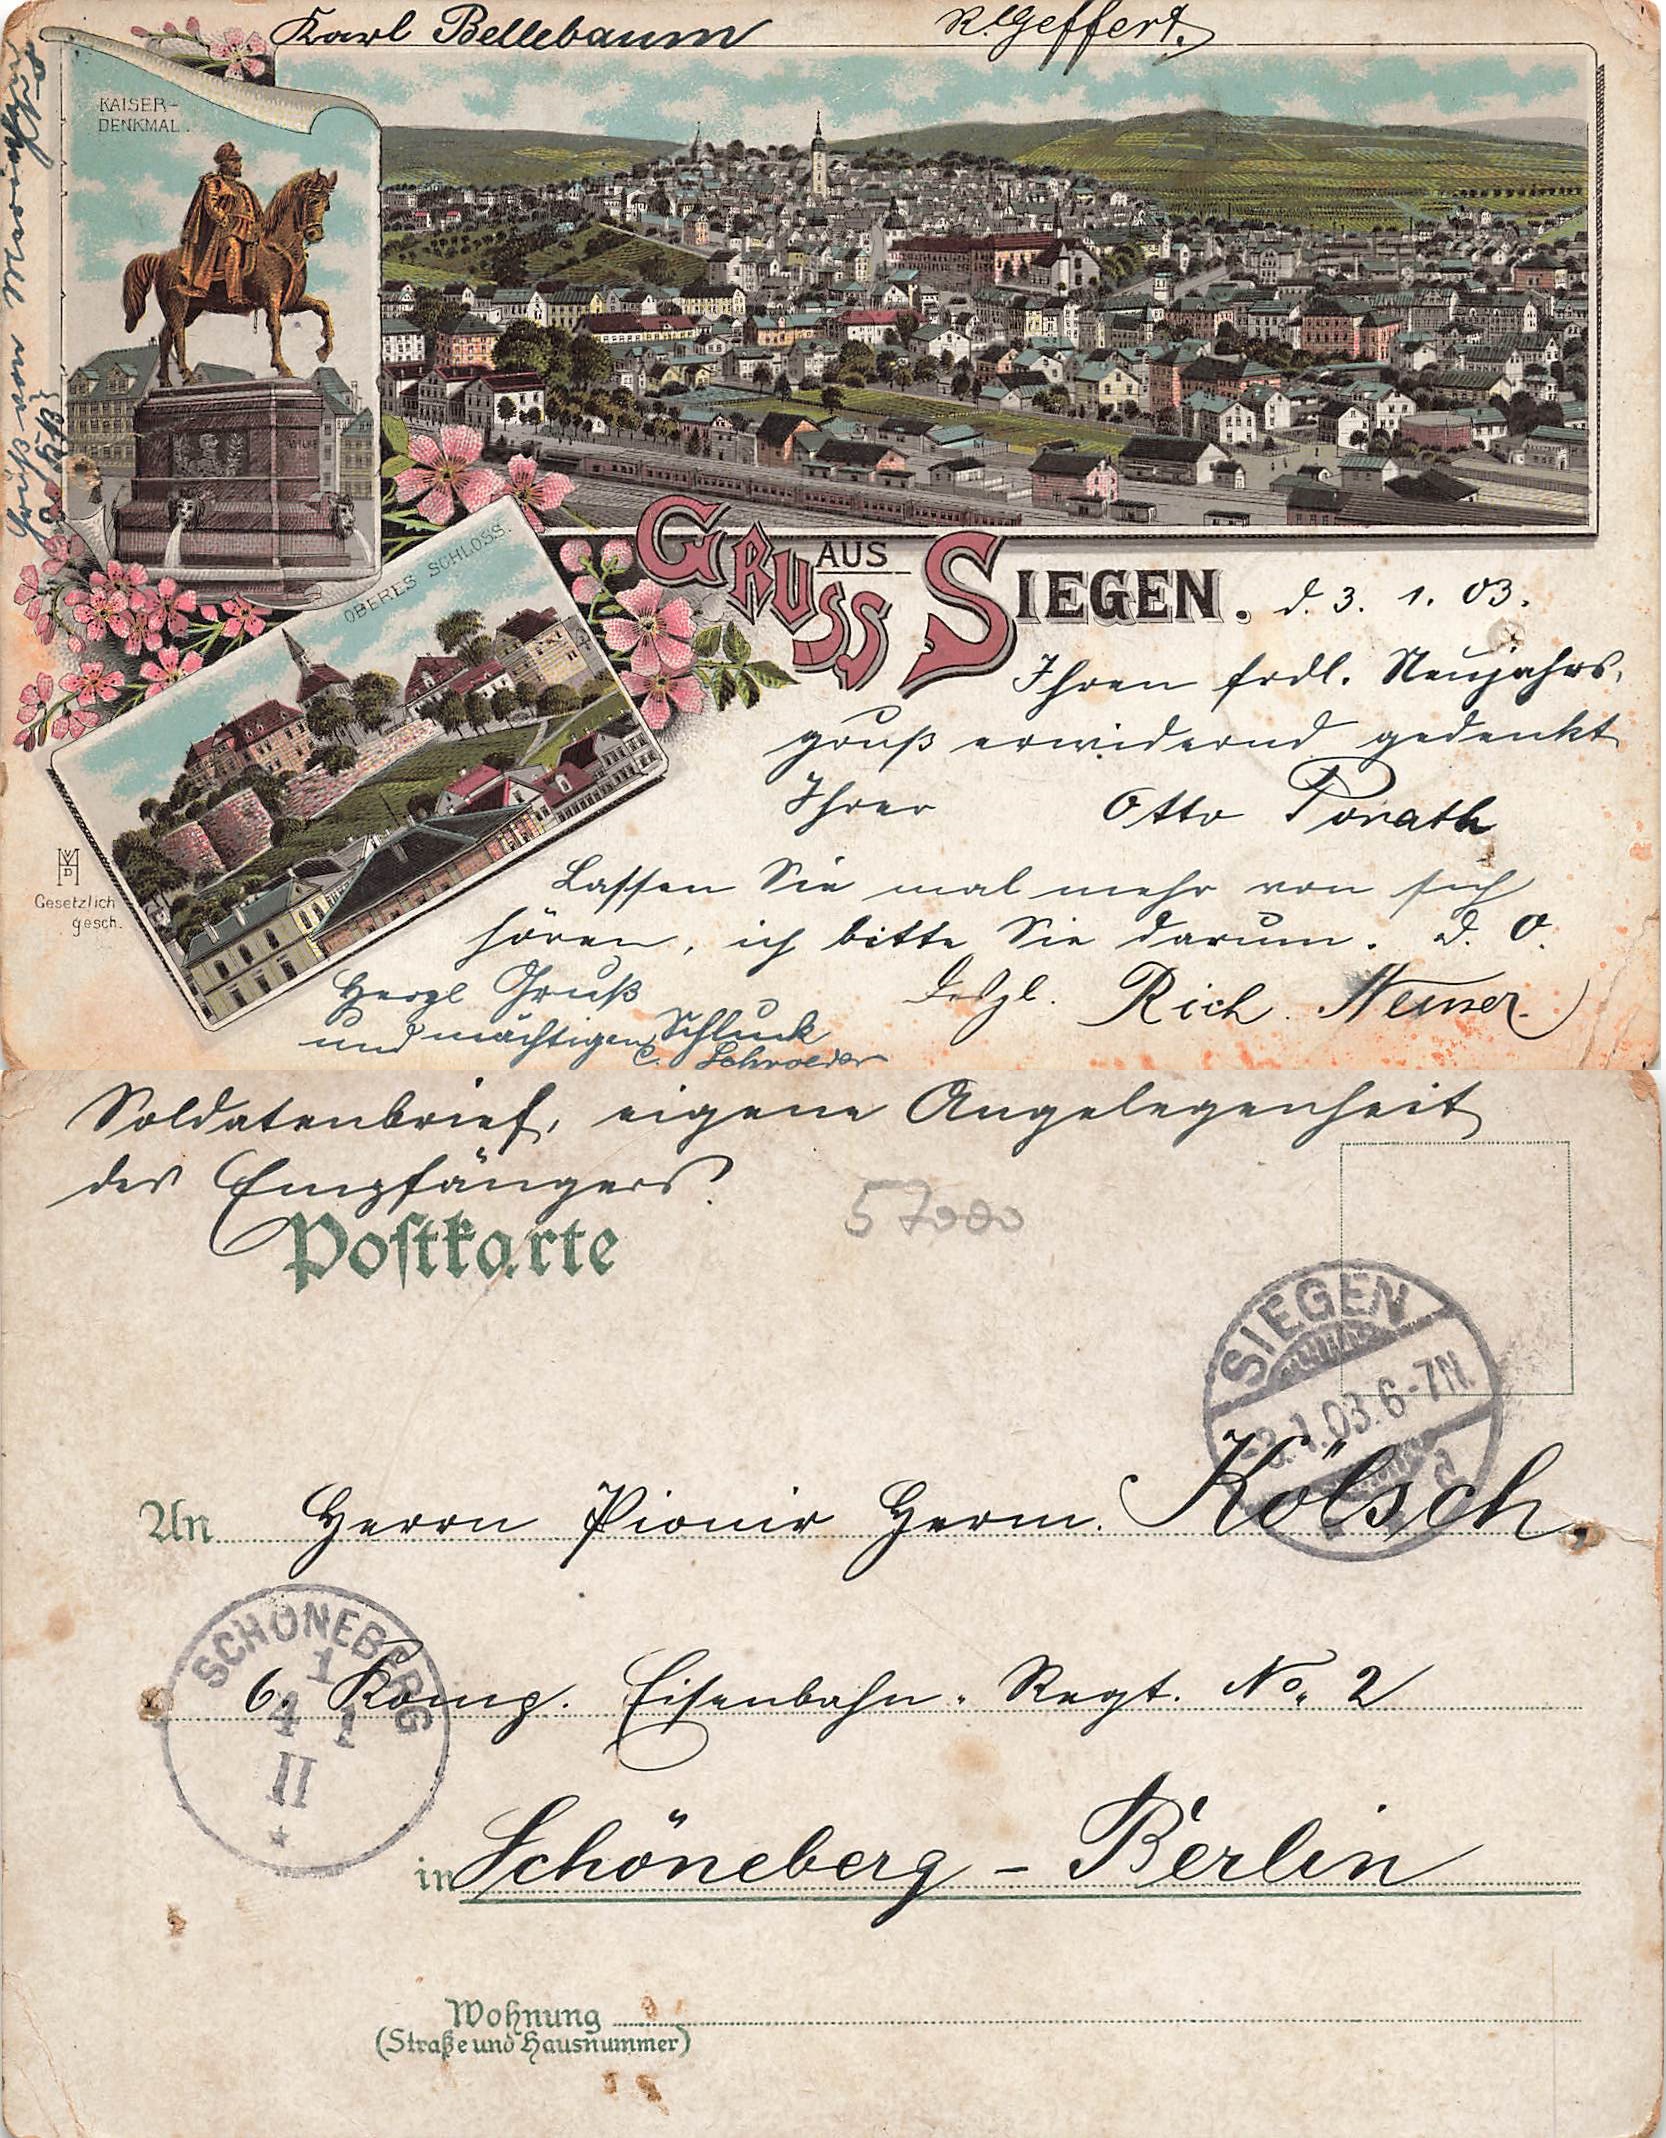 Karl Bellebaum
R. Geffert.
KAISER-
DENKMAL.
OBERES SCHLOSS.
GRUSS AUS SIEGEN. d. 3. 1. 03.
Ihren frdl. Neujahrs-
gruß erwidernd gedenkt
Ihrer Otto Porath
Lassen Sie mal mehr von sich
hören, ich bitte Sie darum. D. O.
Herzl Gruß
und mächtigen Schluck
C. Schroeder
Desgl. Rich.
VHD
Gesetzlich
gesch.
Soldatenbrief, eigene Angelegenheit
des Empfängers.
Postkarte
57000
SIEGEN
-3.1.03.6-7N.
An Herrn Pionir Herm. Kölsch,
SCHÖNEBERG
1
4 1
II
6. Komp. Eisenbahn-Regt. No. 2
in Schöneberg - Berlin
Wohnung
(Straße und Hausnummer)